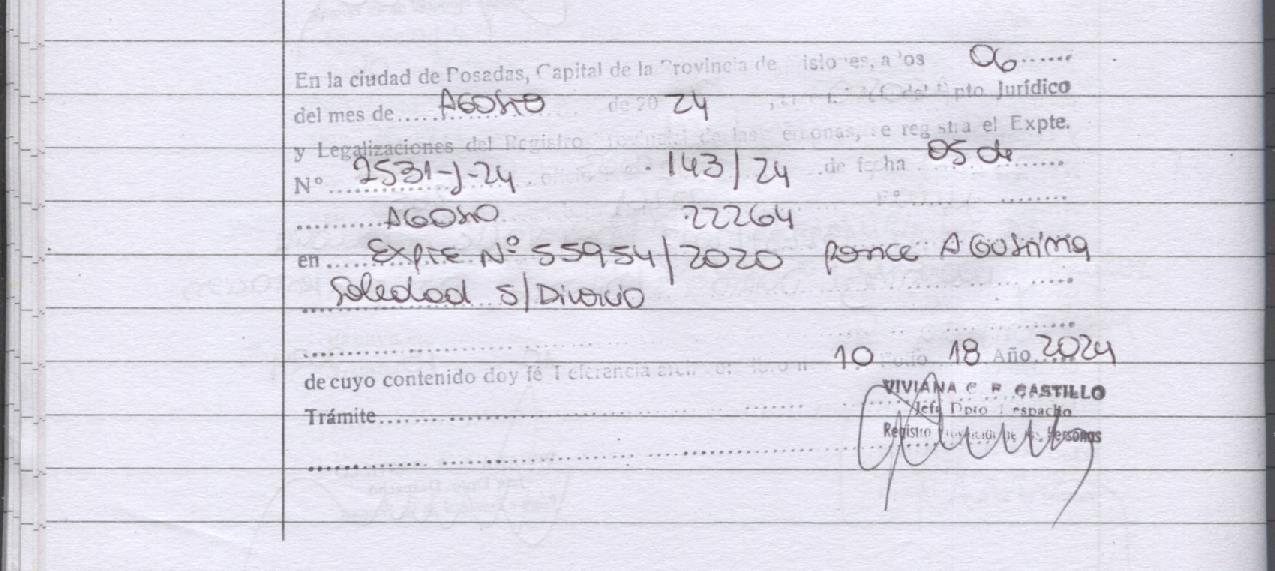 En la ciudad de Posadas, Capital de la Provincia de Misiones, a los 06
del mes de AGOSTO de 20 24, Dpto Jurídico
y Legalizaciones del Registro Provincial de las Personas, se registra el Expte.
N° 2531-J-24 oficio 143/24 de fecha 05 de
AGOSTO 22264
en Expte Nº 55954/2020 Ponce Agostina
Soledad S/Divorcio
10 Folio 18 Año 2024
de cuyo contenido doy fé Referencia
Trámite
VIVIANA C. R. CASTILLO
Jefe Dpto Despacho
Registro Provincial de las Personas